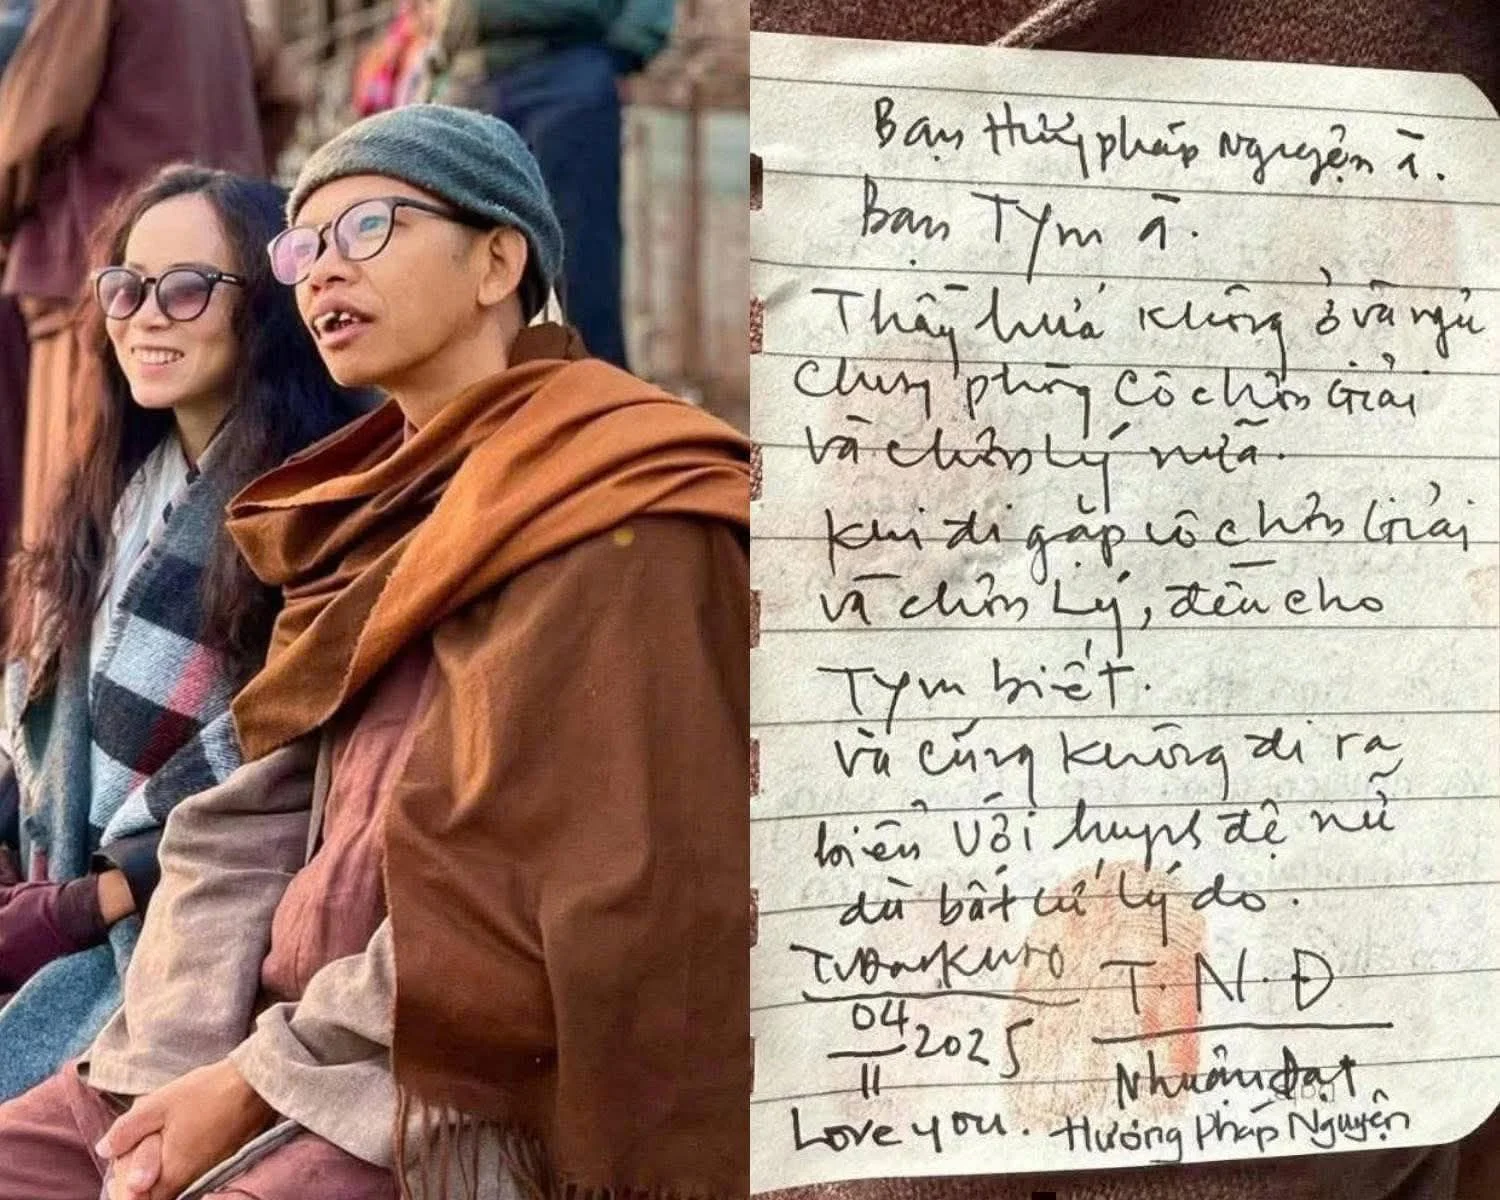 Bạn Hủy pháp Nguyện à.
Bạn Tym à.
Thầy hứa không ở và ngủ
chung phòng Cô chơn Giải
và chơn Lý nữa.
Khi đi gặp cô chơn Giải
và chơn Lý, đều cho
Tym biết.
và cũng không đi ra
biển với huynh đệ nữ
dù bất cứ lý do.
T.N.Đ
04/11 2025
Nhuận Đạt
Love you. Hướng Pháp Nguyện